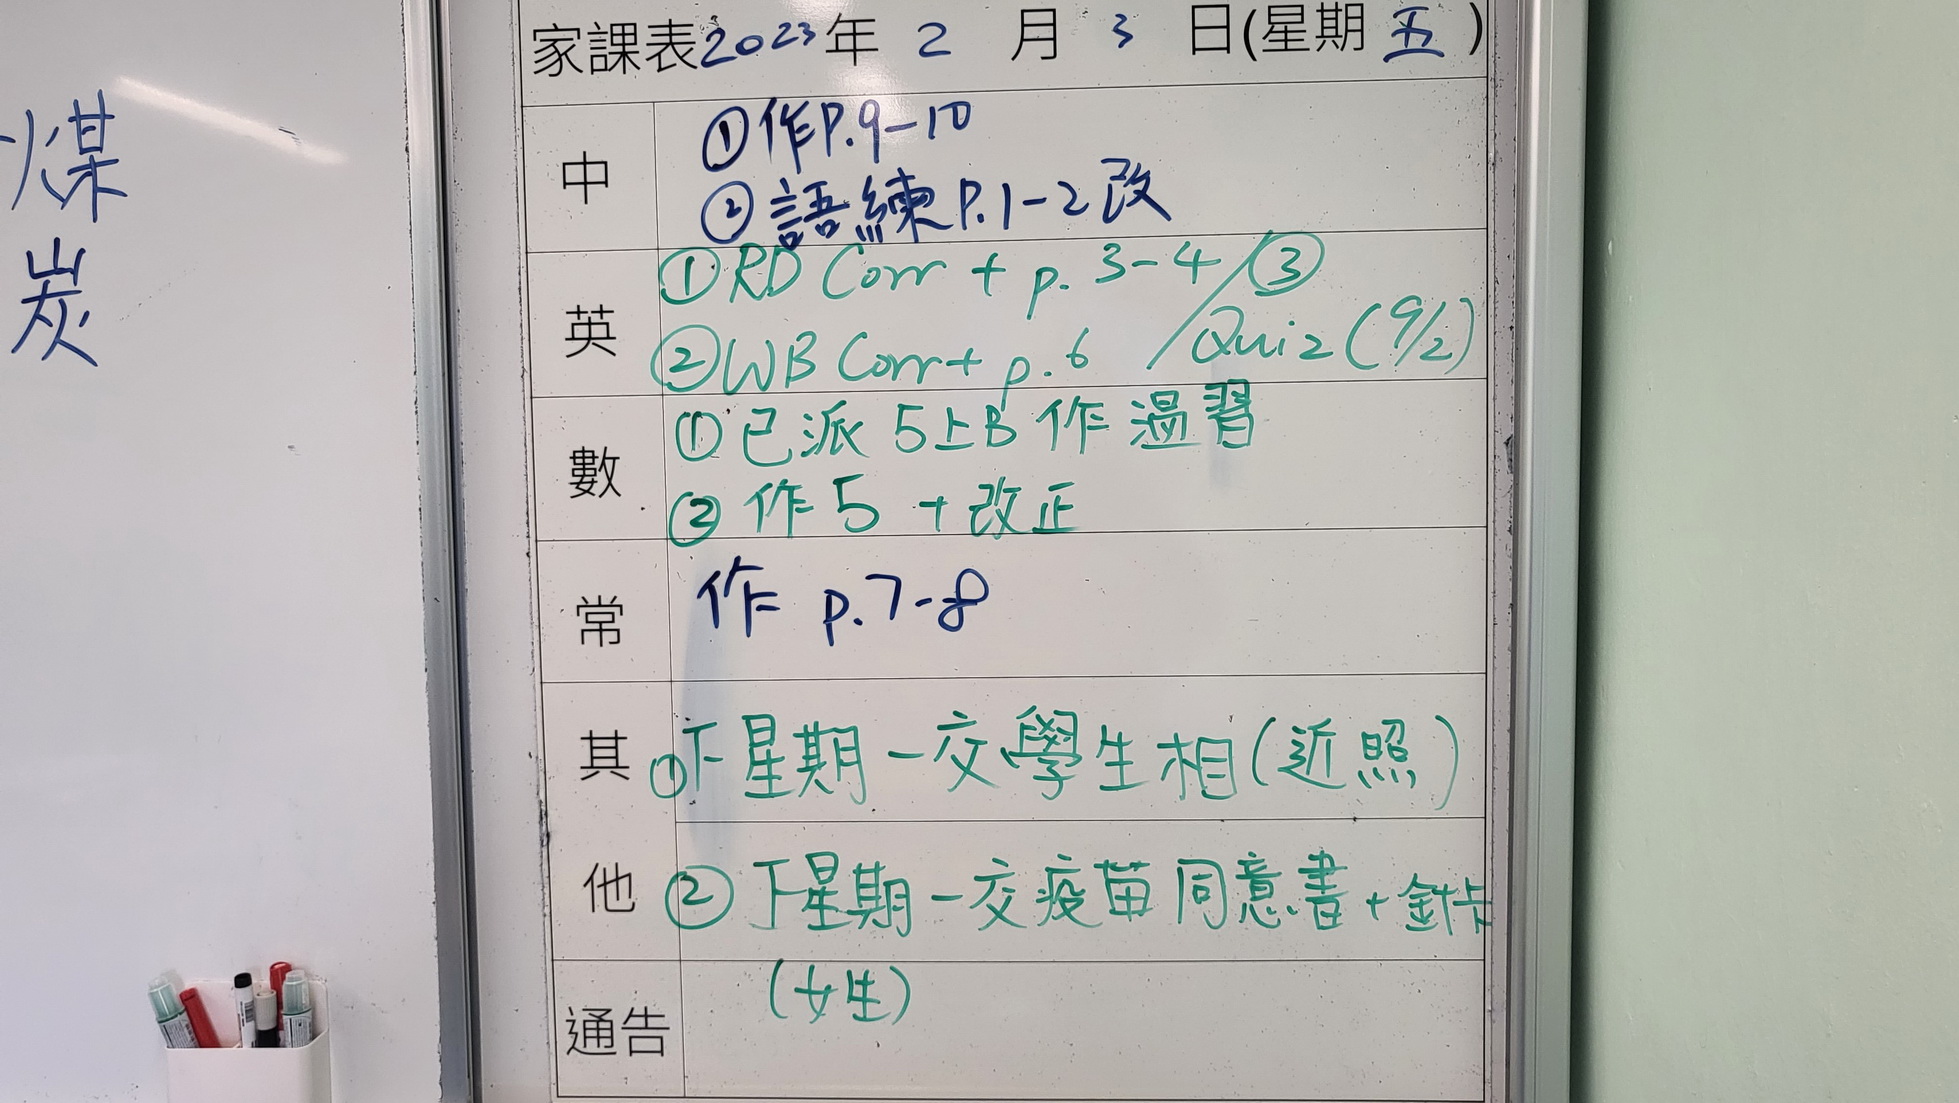 煤
炭
家課表2023年 2 月 3 日(星期 五 )
中
①作P.9-10
②語練P.1-2改
英
①RD Corr + p. 3-4 / ③
②WB Corr + p.6 / Quiz (9/2)
數
①已派 5上B 作 溫習
②作 5 + 改正
常
作 p.7-8
其他
①下星期一交學生相(近照)
②下星期一交疫苗同意書+針卡
(女生)
通告